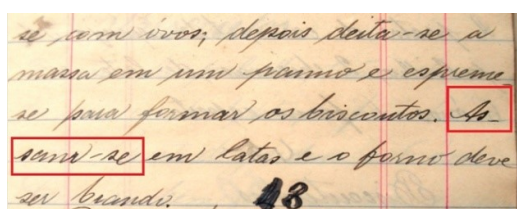 se com óvos; depois deita-se a
massa em um panno e espreme
se para formar os biscoutos. As-
sam-se em latas e o forno deve
ser brando.
13